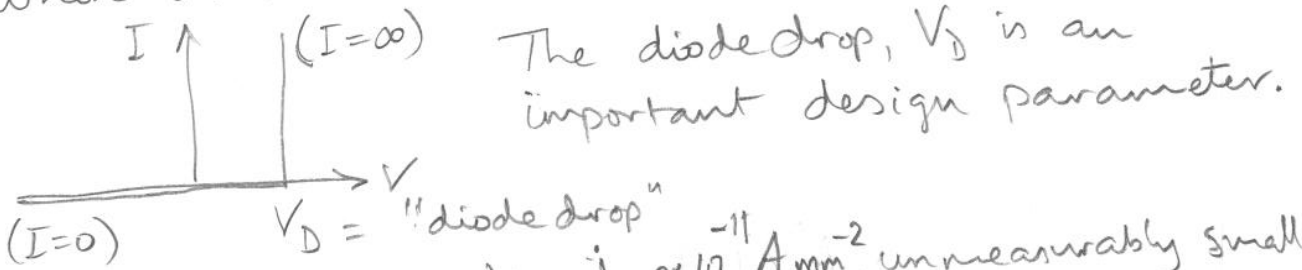 I (I=∞) The diode drop, V_D is an
important design parameter.
V
(I=0) V_D = "diode drop"
10⁻¹¹ A mm⁻² unmeasurably small